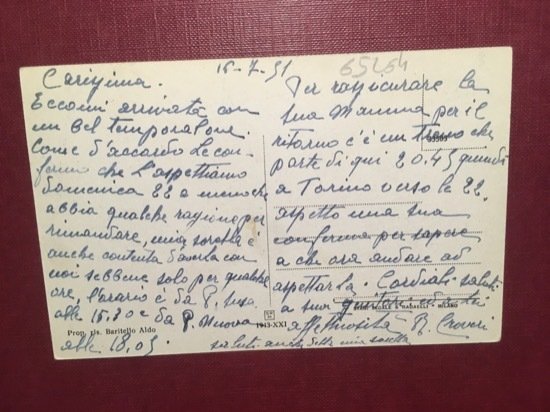 16-7-51
65264
Carissima.
Eccomi arrivata con
un bel temporalone.
Come d'accordo Le con-
fermo che L'aspettiamo
domenica 22 a meno che
abbia qualche ragione per
rimandare, mia sorella è
anche contenta d'averla con
noi sebbene solo per qualche
ore, l'orario è da P. Susa
alle 15.30 e da P. Nuova
alle 18,05.
Per rassicurare la
sua Mamma per il
ritorno c'è un treno che
parte di qui 20.45 quindi
a Torino verso le 22.
aspetto una sua
conferma per sapere
a che ora andare ad
aspettarla. Cordiali saluti
a suoi genitori ed a Lei
affettuosità R.
saluti anche della mia sorella
Prop. ris. Baritello Aldo
1943-XXI
MILANO